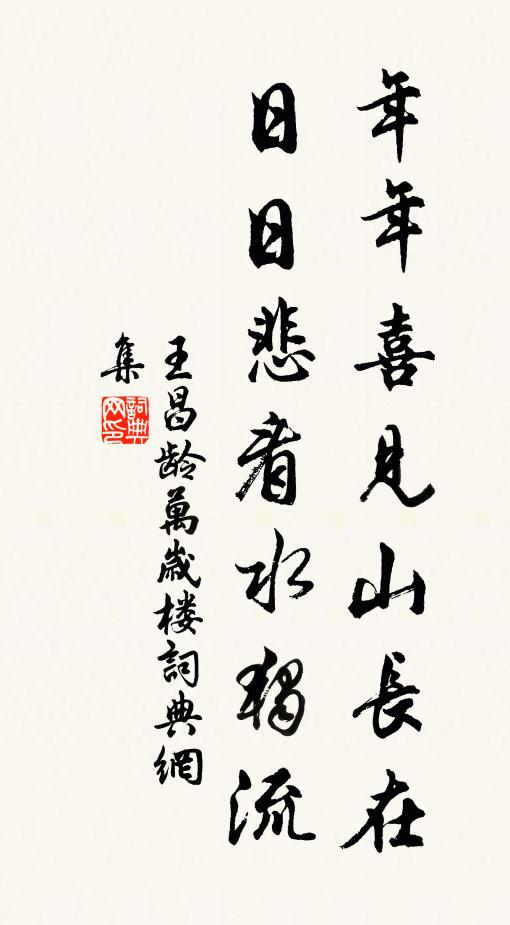 年年喜見山長在
日日悲看水獨流
王昌龄萬歲楼詞典網
集
詞典
网印